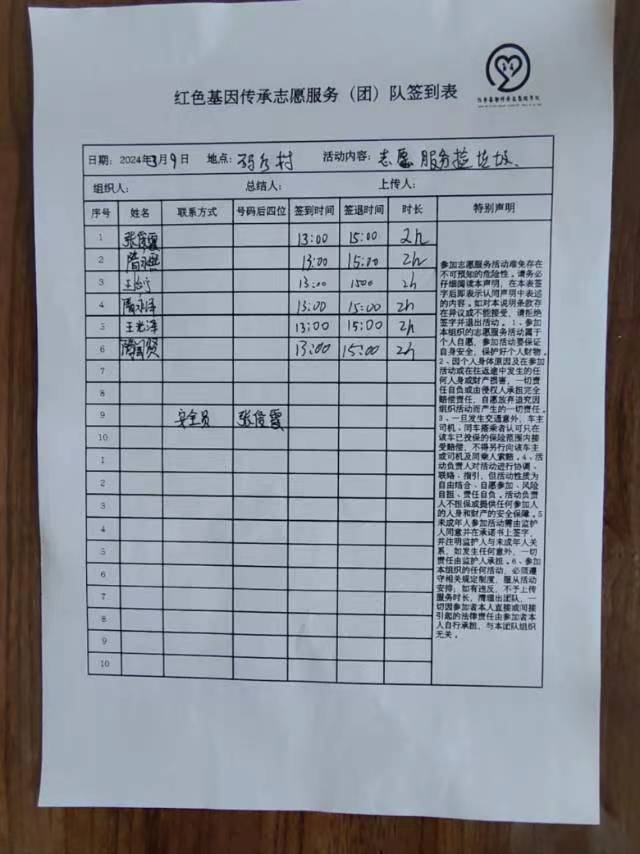 红色基因传承志愿服务（团）队签到表
日期：2024年3月9日 地点：村 活动内容：志愿服务捡垃圾、
组织人： 总结人： 上传人：
序号 姓名 联系方式 号码后四位 签到时间 签退时间 时长 特别声明
1 张俊霞 13:00 15:00 2h
2 13:00 15:00 2h
3 13:00 1500 2h
4 13:00 15:00 2h
5 王光泽 13:00 15:00 2h
6 13:00 15:00 2h
7
8
9 安全员 张俊霞
10
1
2
3
4
5
5
6
7
8
9
10
参加志愿服务活动难免存在
不可预知的危险性。请务必
仔细阅读本声明，在本表签
字后即表示认同声明中表述
的内容。如对本说明条款存
在异议或不能接受，请拒绝
签字并退出活动。1、参加
本组织的志愿服务活动属于
个人自愿，参加活动要保证
自身安全，保护好个人财物。
2、因个人身体原因及在参加
活动或在往返途中发生的任
何人身或财产损害，一切责
任自负或由侵权人承担完全
赔偿责任，自愿放弃追究因
组织活动而产生的一切责任。
3、一旦发生交通意外，车主
司机、同车搭乘者认可只在
该车已投保的保险范围内接
受赔偿，不得另行向该车主
或司机及同乘人索赔。4、活
动负责人对活动进行协调、
联络、指引，但活动性质为
自由结合、自愿参加、风险
自担、责任自负。活动负责
人不担保或提供任何参加人
的人身和财产的安全保障。5
未成年人参加活动需由监护
人同意并在承诺书上签字，
并注明监护人与未成年人关
系，如发生任何意外，一切
责任由监护人承担。6、参加
本组织的任何活动，必须遵
守相关规定制度，服从活动
安排；如有违反，不予上传
服务时长，清理出团队，一
切因参加者本人直接或间接
引起的法律责任由参加者本
人自行承担，与本团队组织
无关。